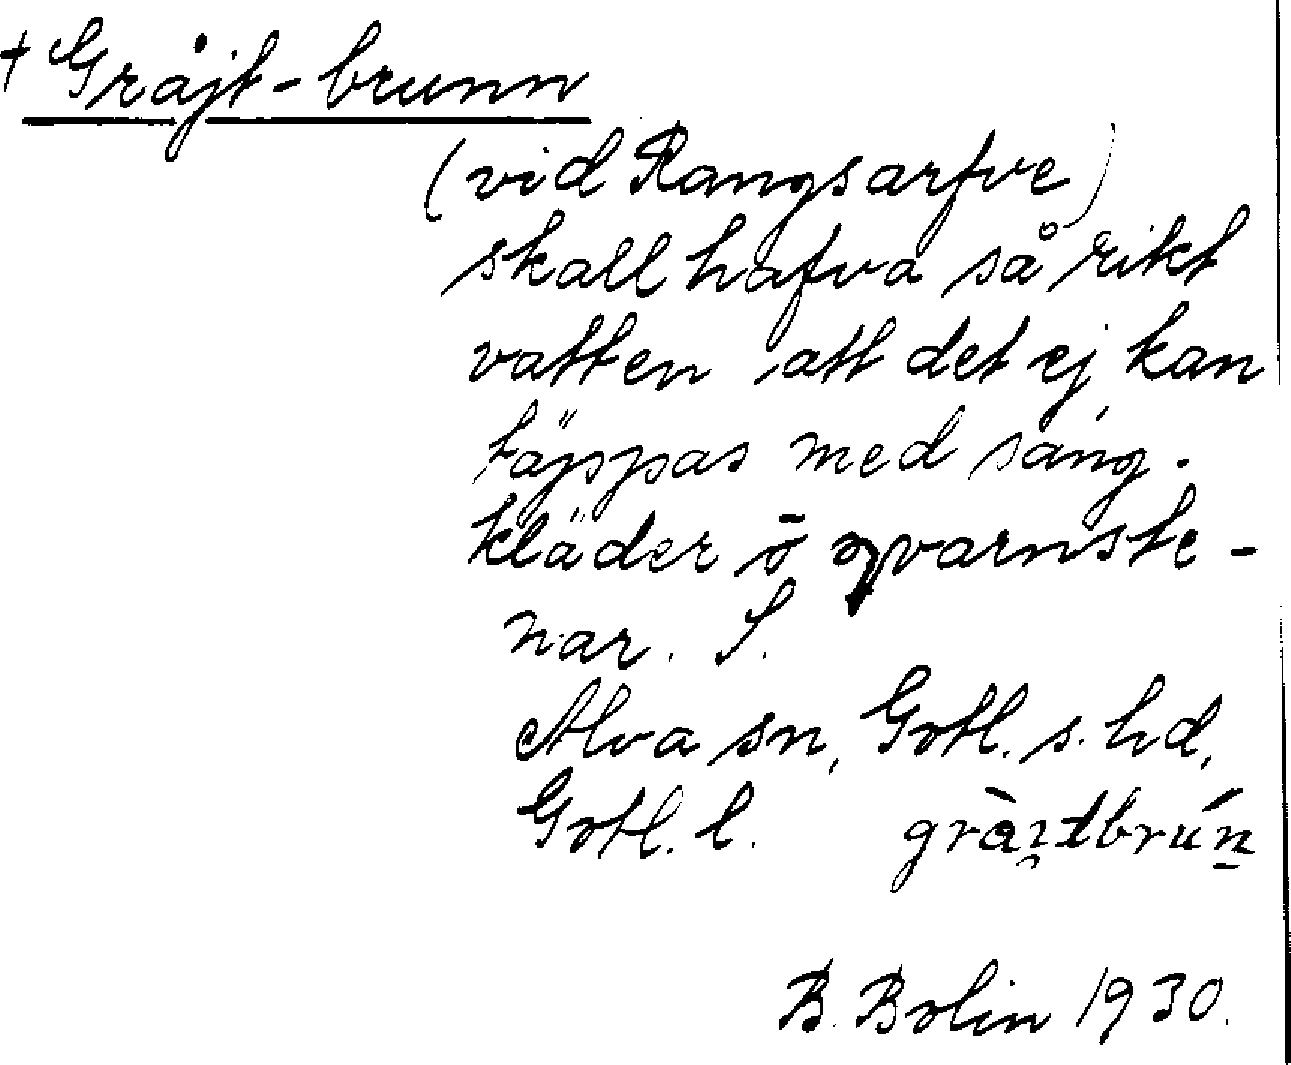 † Gråjt-brunn
(vid Rangsarfve)
skall hafva så rikt
vatten, att det ej kan
täppas med säng-
kläder ō qvarnste-
nar. S.
Alva sn, Gotl. s. hd,
Gotl. l.
B. Bolin 1930.